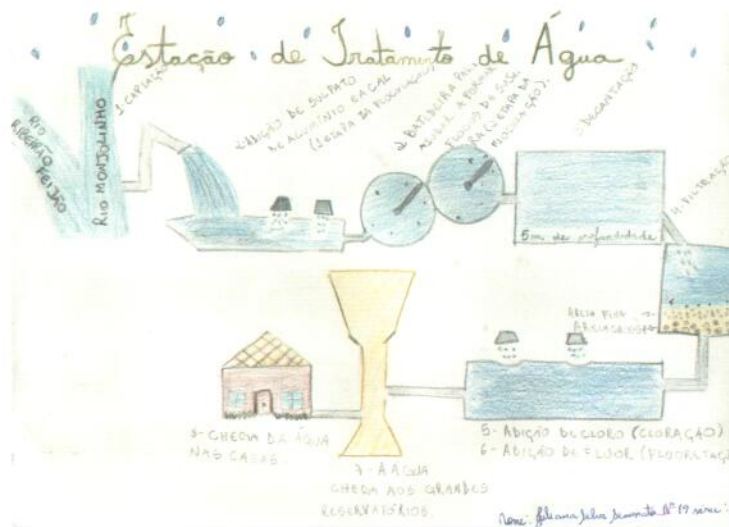 Estação de Tratamento de Água
RIO
RIBEIRÃO
FEIJÃO
RIO MONJOLINHO
1. CAPTAÇÃO
2. ADIÇÃO DE SULFATO
DE ALUMÍNIO E A CAL
(1 ETAPA DA FLOCULAÇÃO)
2. BATEDEIRA PARA
AJUDAR A FORMAR
FLOCOS DE SUJEI
RA (2 ETAPA DA
FLOCULAÇÃO).
3. DECANTAÇÃO
5m de profundidade
4. FILTRAÇÃO
AREIA FINA
AREIA GROSSA
5- ADIÇÃO DE CLORO (CLORAÇÃO)
6- ADIÇÃO DE FLUOR (FLUORETAÇ
7- A ÁGUA
CHEGA AOS GRANDES
RESERVATÓRIOS.
8- CHEGADA DA ÁGUA
NAS CASAS.
Nome: Juliana Silva Nº 19 série: